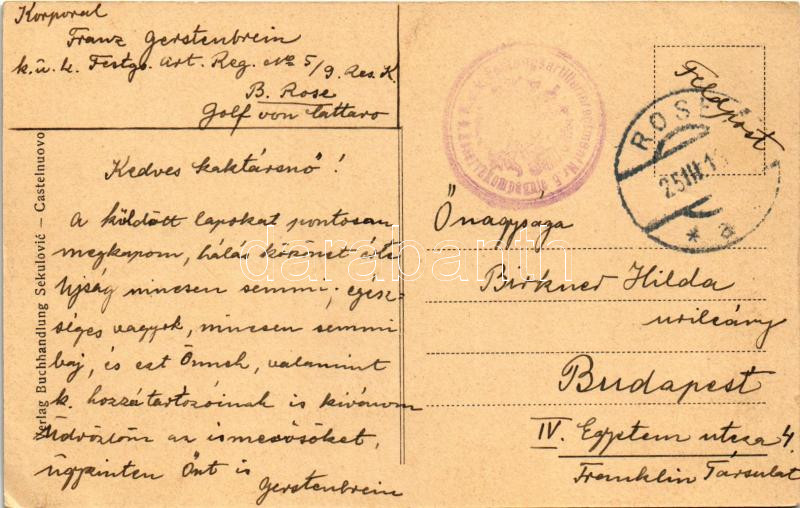 Korporal
Franz Gerstenbrein
k. u. k. Festgs. Art. Reg. No 5/9. Res. K.
B. Rose
Golf von Cattaro
Kedves kaktársnő!
A küldött lapokat pontosan
megkapom, hálás köszönet érte
Ujság nincsen semmi; egész-
séges vagyok, nincsen semmi
baj, és ezt Önnek, valamint
k. hozzátartozóinak is kivánom
Üdvözlöm az ismerősöket,
úgyszintén Önt is
Gerstenbrein
Verlag Buchhandlung Sekulović – Castelnuovo
Feldpost
ROSE
25 III 1
* a
Önagysága
Birkner Hilda
urileány
Budapest
IV. Egyetem utcza 4.
Franklin Társulat
darabanth